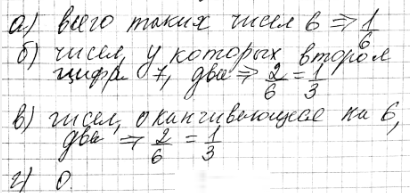 а) всего таких чисел 6 ⇒ 1/6
б) чисел, у которых вторая
цифра 7, две ⇒ 2/6 = 1/3
в) чисел, оканчивающееся на 6,
две ⇒ 2/6 = 1/3
г) 0.